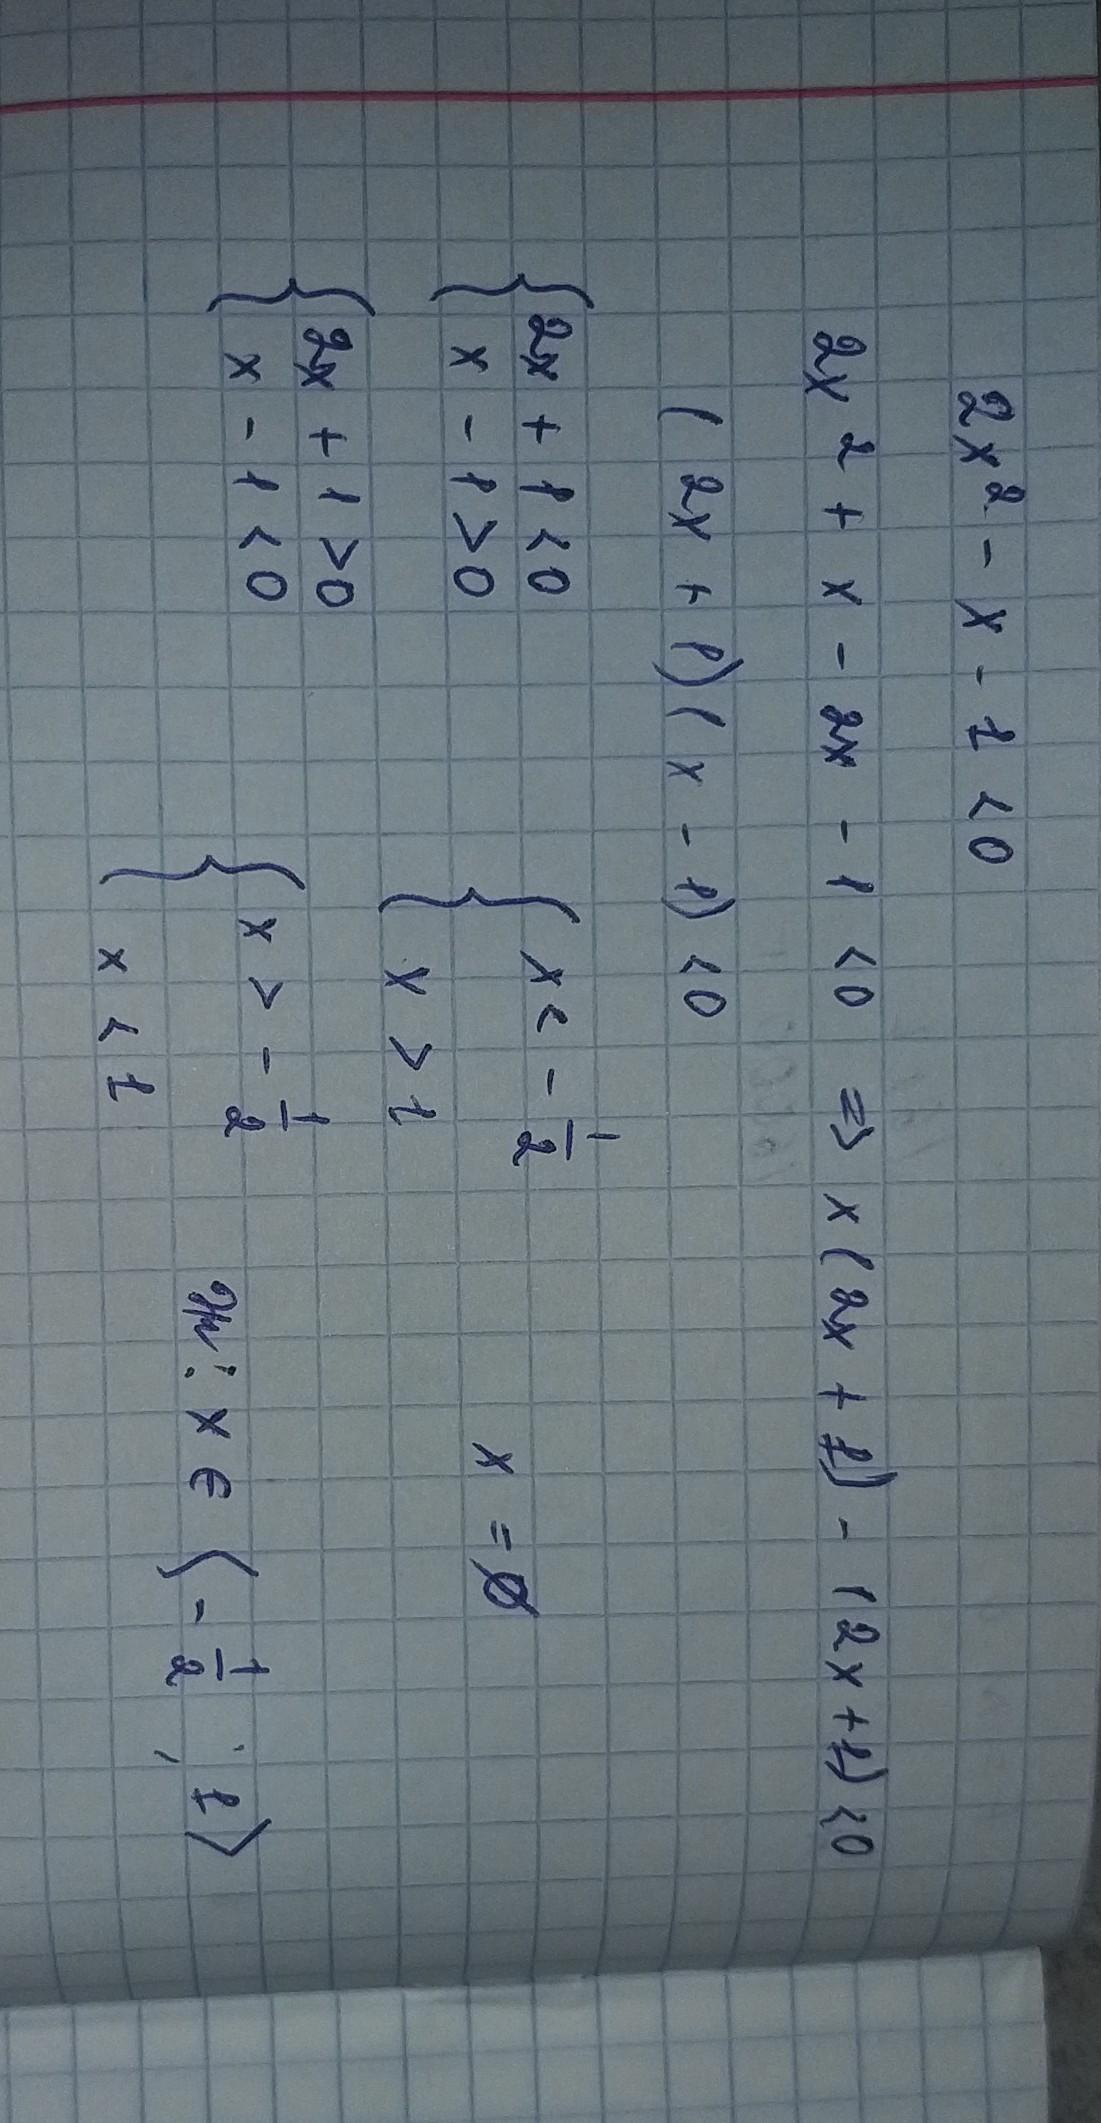 2x² - x - 1 < 0
2x² + x - 2x - 1 < 0 => x(2x + 1) - (2x + 1) < 0
(2x + 1)(x - 1) < 0
{ 2x + 1 < 0 { x < - 1/2
x - 1 > 0 x > 1 x = ∅
{ 2x + 1 > 0 { x > - 1/2
x - 1 < 0 x < 1 : x ∈ (- 1/2 ; 1)